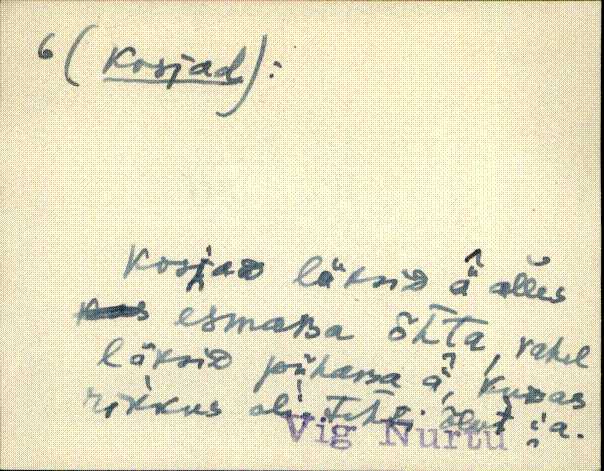 (kosjad):
kosjaᴅ läksiᴅ ä̂ alles
esmaʙa ȭhta, vahel
läksiᴅ pühaʙa ä̂, kuᴅas
rikkus oli. Tehti õlut ja.
Vig Nurtu